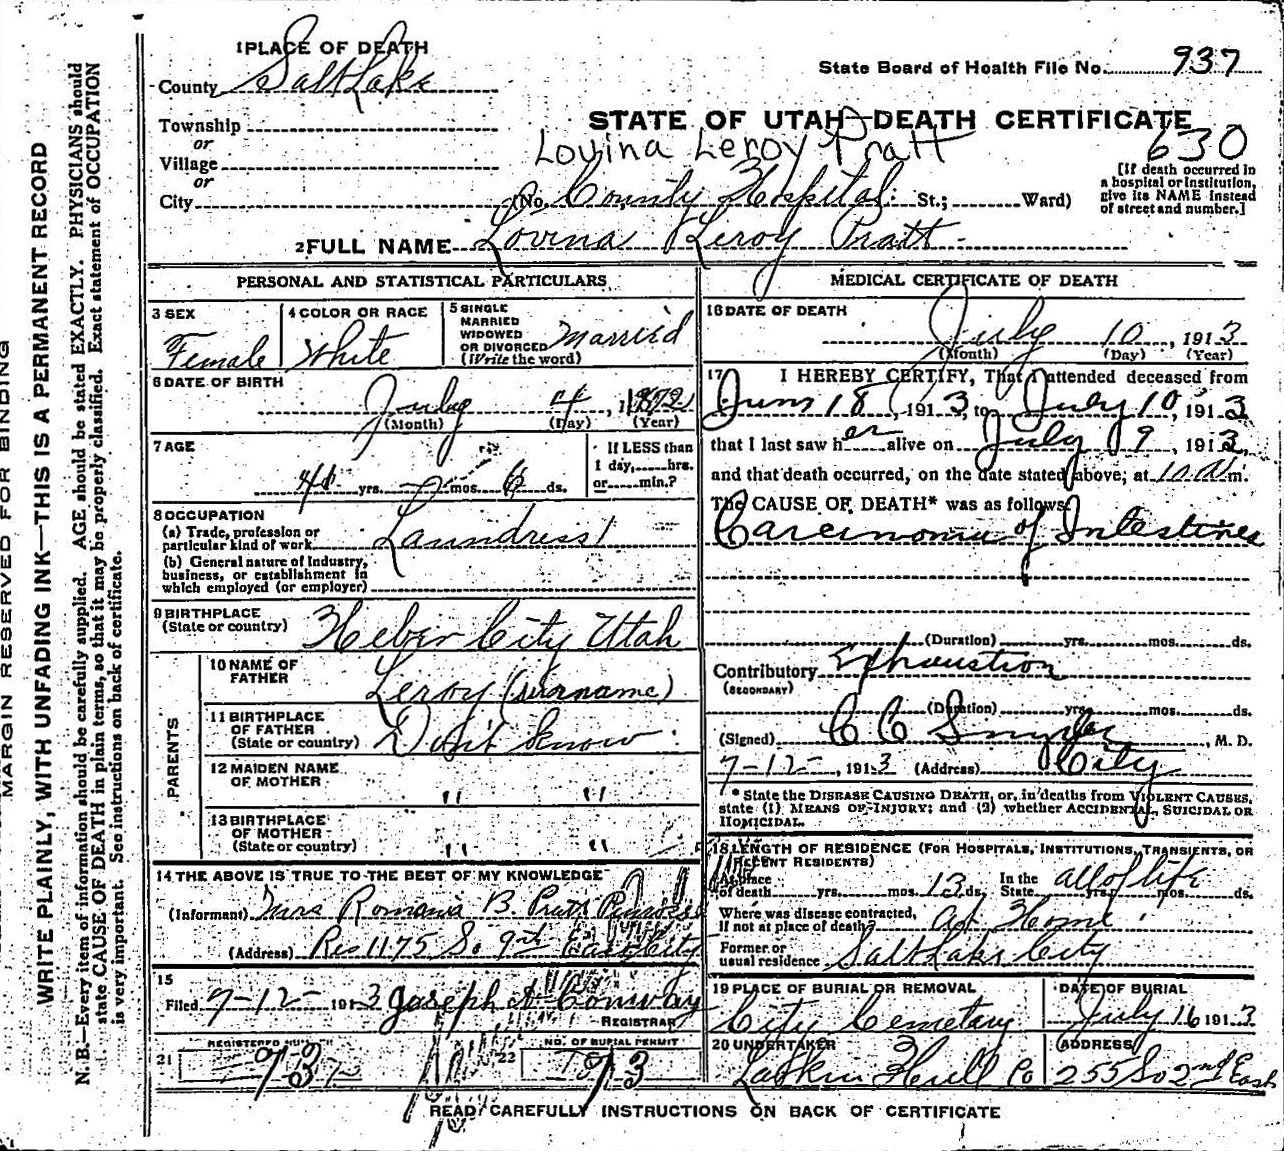 MARGIN RESERVED FOR BINDING
WRITE PLAINLY, WITH UNFADING INK—THIS IS A PERMANENT RECORD
N. B.—Every item of information should be carefully supplied. AGE should be stated EXACTLY. PHYSICIANS should
state CAUSE OF DEATH in plain terms, so that it may be properly classified. Exact statement of OCCUPATION
is very important. See instructions on back of certificate.
1 PLACE OF DEATH
County Salt Lake
State Board of Health File No. 937
Township
or
Village
or
City
STATE OF UTAH—DEATH CERTIFICATE
Lovina Leroy Pratt
630
(No. County Hospital St.; Ward)
[If death occurred in
a hospital or institution,
give its NAME instead
of street and number.]
2 FULL NAME Lovina Leroy Pratt
PERSONAL AND STATISTICAL PARTICULARS
3 SEX
Female
4 COLOR OR RACE
White
5 SINGLE
MARRIED
WIDOWED
OR DIVORCED
(Write the word)
Married
6 DATE OF BIRTH
July 4, 1872
(Month) (Day) (Year)
7 AGE
41 yrs. mos. 6 ds.
If LESS than
1 day, hrs.
or min.?
8 OCCUPATION
(a) Trade, profession or
particular kind of work Laundress
(b) General nature of Industry,
business, or establishment in
which employed (or employer)
9 BIRTHPLACE
(State or country)
Heber City Utah
PARENTS
10 NAME OF
FATHER
Leroy (surname)
11 BIRTHPLACE
OF FATHER
(State or country)
Don't know
12 MAIDEN NAME
OF MOTHER
" "
13 BIRTHPLACE
OF MOTHER
(State or country)
" "
14 THE ABOVE IS TRUE TO THE BEST OF MY KNOWLEDGE
(Informant) Mrs Romania B. Pratt Penrose
(Address) Res 1175 So. 9th East City
15
Filed 7-12- 1913 Joseph Conway
REGISTRAR
21 REGISTERED
937
22 NO. OF BURIAL PERMIT
MEDICAL CERTIFICATE OF DEATH
16 DATE OF DEATH
July 10, 1913
(Month) (Day) (Year)
17 I HEREBY CERTIFY, That I attended deceased from
June 18, 1913 to July 10, 1913
that I last saw her alive on July 9, 1913,
and that death occurred, on the date stated above, at 10 A.m.
The CAUSE OF DEATH* was as follows:
Carcinoma of Intestines
(Duration) yrs. mos. ds.
Contributory Exhaustion
(SECONDARY)
(Duration) yrs. mos. ds.
(Signed) C C Snyder, M. D.
7-12-, 1913 (Address) City
* State the DISEASE CAUSING DEATH, or, in deaths from VIOLENT CAUSES,
state (1) MEANS OF INJURY; and (2) whether ACCIDENTAL, SUICIDAL OR
HOMICIDAL.
18 LENGTH OF RESIDENCE (FOR HOSPITALS, INSTITUTIONS, TRANSIENTS, OR
RECENT RESIDENTS)
At place
of death yrs. mos. 13 ds. In the
State all of life yrs. mos. ds.
Where was disease contracted,
If not at place of death? At Home
Former or
usual residence Salt Lake City
19 PLACE OF BURIAL OR REMOVAL
City Cemetary
DATE OF BURIAL
July 16 1913
20 UNDERTAKER
Larkin Hull Co
ADDRESS
255 So 2nd East
READ CAREFULLY INSTRUCTIONS ON BACK OF CERTIFICATE